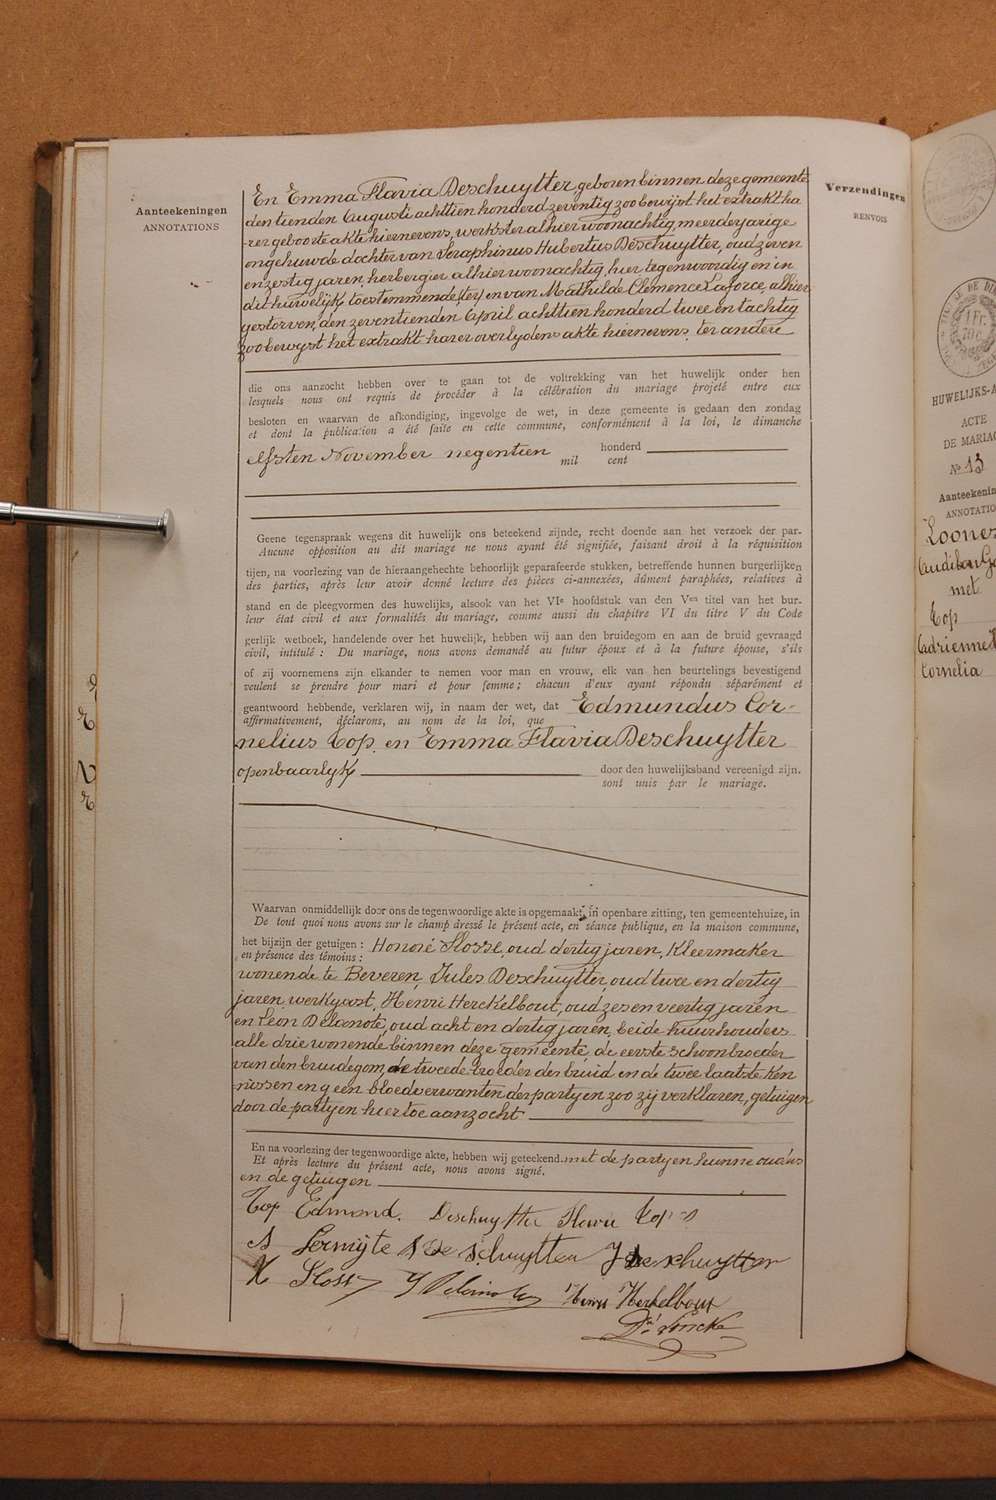 Aanteekeningen
ANNOTATIONS
Verzendingen
RENVOIS
En Emma Flavia Deschuytter, geboren binnen deze gemeente
den tienden Augusti achttien honderd zeventig zoo bewijst het extrakt ha
rer geboorte akte hiernevens, werkster alhier woonachtig, meerderjarige
ongehuwde dochter van Seraphinus Hubertus Deschuytter, oud zeven
en zestig jaren, herbergier alhier woonachtig, hier tegenwoordig en in
dit huwelijk toestemmende (ter) en van Mathilde Clemence Laforce, alhier
gestorven, den zeventienden April achttien honderd twee en tachtig
zoo bewyst het extrakt harer overlydens akte hiernevens, ter andere
die ons aanzocht hebben over te gaan tot de voltrekking van het huwelijk onder hen
lesquels nous ont requis de procéder à la célébration du mariage projeté entre eux
besloten en waarvan de afkondiging, ingevolge de wet, in deze gemeente is gedaan den zondag
et dont la publication a été faite en cette commune, conformément à la loi, le dimanche
elfsten November negentien mil honderd
cent
Geene tegenspraak wegens dit huwelijk ons beteekend zijnde, recht doende aan het verzoek der par-
Aucune opposition au dit mariage ne nous ayant été signifiée, faisant droit à la réquisition
tijen, na voorlezing van de hieraangehechte behoorlijk geparafeerde stukken, betreffende hunnen burgerlijken
des parties, après leur avoir donné lecture des pièces ci-annexées, dûment paraphées, relatives à
stand en de pleegvormen des huwelijks, alsook van het VIe hoofdstuk van den Ven titel van het bur-
leur état civil et aux formalités du mariage, comme aussi du chapitre VI du titre V du Code
gerlijk wetboek, handelende over het huwelijk, hebben wij aan den bruidegom en aan de bruid gevraagd
civil, intitulé : Du mariage, nous avons demandé au futur époux et à la future épouse, s'ils
of zij voornemens zijn elkander te nemen voor man en vrouw, elk van hen beurtelings bevestigend
veulent se prendre pour mari et pour femme ; chacun d'eux ayant répondu séparément et
geantwoord hebbende, verklaren wij, in naam der wet, dat Edmundus Cor-
affirmativement, déclarons, au nom de la loi, que
nelius Top en Emma Flavia Deschuytter
openbaarlijk door den huwelijksband vereenigd zijn.
sont unis par le mariage.
Waarvan onmiddellijk door ons de tegenwoordige akte is opgemaakt, in openbare zitting, ten gemeentehuize, in
De tout quoi nous avons sur le champ dressé le présent acte, en séance publique, en la maison commune,
het bijzijn der getuigen : Honoré Slosse, oud dertig jaren, Kleermaker
en présence des témoins :
wonende te Beveren, Jules Deschuytter, oud twee en dertig
jaren, werkgast, Henri Herckelbout, oud zes en veertig jaren
en Léon Delanote, oud acht en dertig jaren, beide huurhouders
alle drie wonende binnen deze gemeente, de eerste schoonbroeder
van den bruidegom, de tweede broeder der bruid en de twee laatste ken
nissen en geen bloedverwanten der partyen zoo zij verklaren, getuigen
door de partyen hiertoe aanzocht
En na voorlezing der tegenwoordige akte, hebben wij geteekend met de partyen hunne ouders
Et après lecture du présent acte, nous avons signé.
en de getuigen
Top Edmond. Deschuytter Top
Sermijte S De Schuytter J Deschuytter
Slosse Henri Herkelbout
HUWELIJKS-A
ACTE
DE MARIAG
No 13
Aanteekenin
ANNOTATIO
met
Top
Adrienne
Cornelia